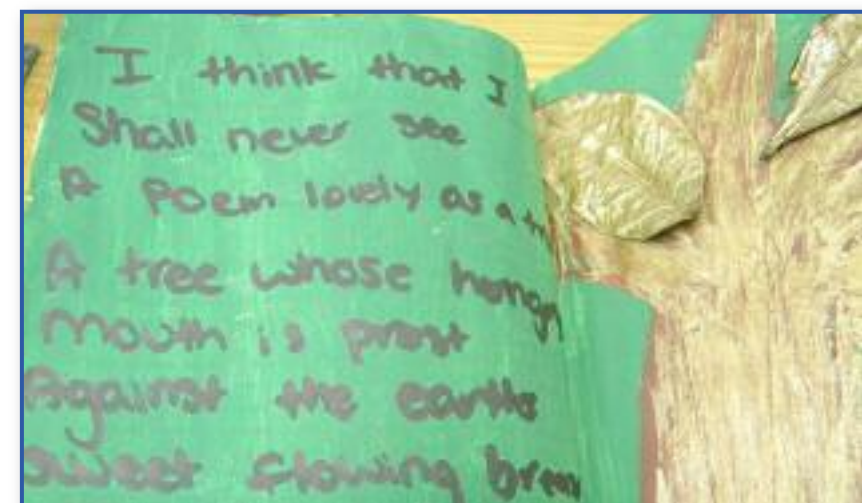 I think that I
Shall never see
A Poem lovely as a tr
A tree whose hongry
mouth is prest
Against the earths
sweet flowing breas